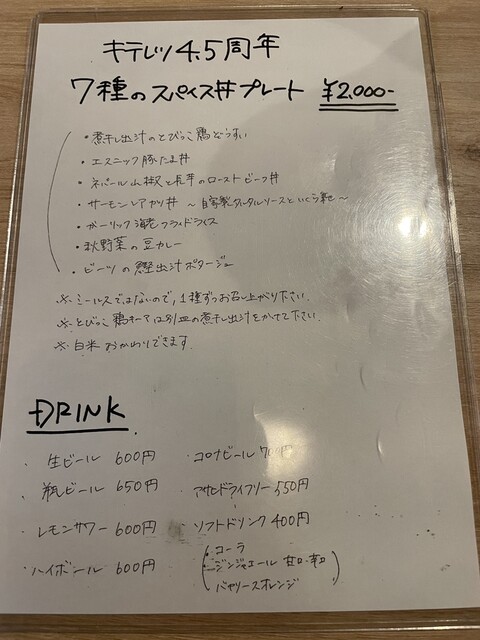 キテレツ 4.5周年
7種のスパイス丼プレート ¥2,000-
・煮干し出汁のとびっこ鶏ぞうすい
・エスニック豚たま丼
・ネパール山椒と長芋のローストビーフ丼
・サーモンレアカツ丼 〜自家製タルタルソースといくら乗せ〜
・ガーリック海老フライドライス
・秋野菜の豆カレー
・ビーツの鰹出汁ポタージュ
※ミールスではないので、1種ずつお召し上がり下さい.
※とびっこ鶏 は別皿の煮干し出汁をかけて下さい.
※白米おかわりできます.
DRINK
・生ビール 600円
・瓶ビール 650円
・レモンサワー 600円
・ハイボール 600円
・コロナビール 700円
・アサヒドライフリー 550円
・ソフトドリンク 400円
・コーラ
・ジンジャエール 甘口・辛口
・バヤリースオレンジ